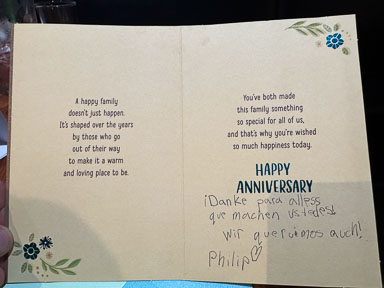 A happy family
doesn't just happen.
It's shaped over the years
by those who go
out of their way
to make it a warm
and loving place to be.
You've both made
this family something
so special for all of us,
and that's why you're wished
so much happiness today.
HAPPY
ANNIVERSARY
¡Danke para alless
que machen ustedes!
Wir queruimos auch!
Philip